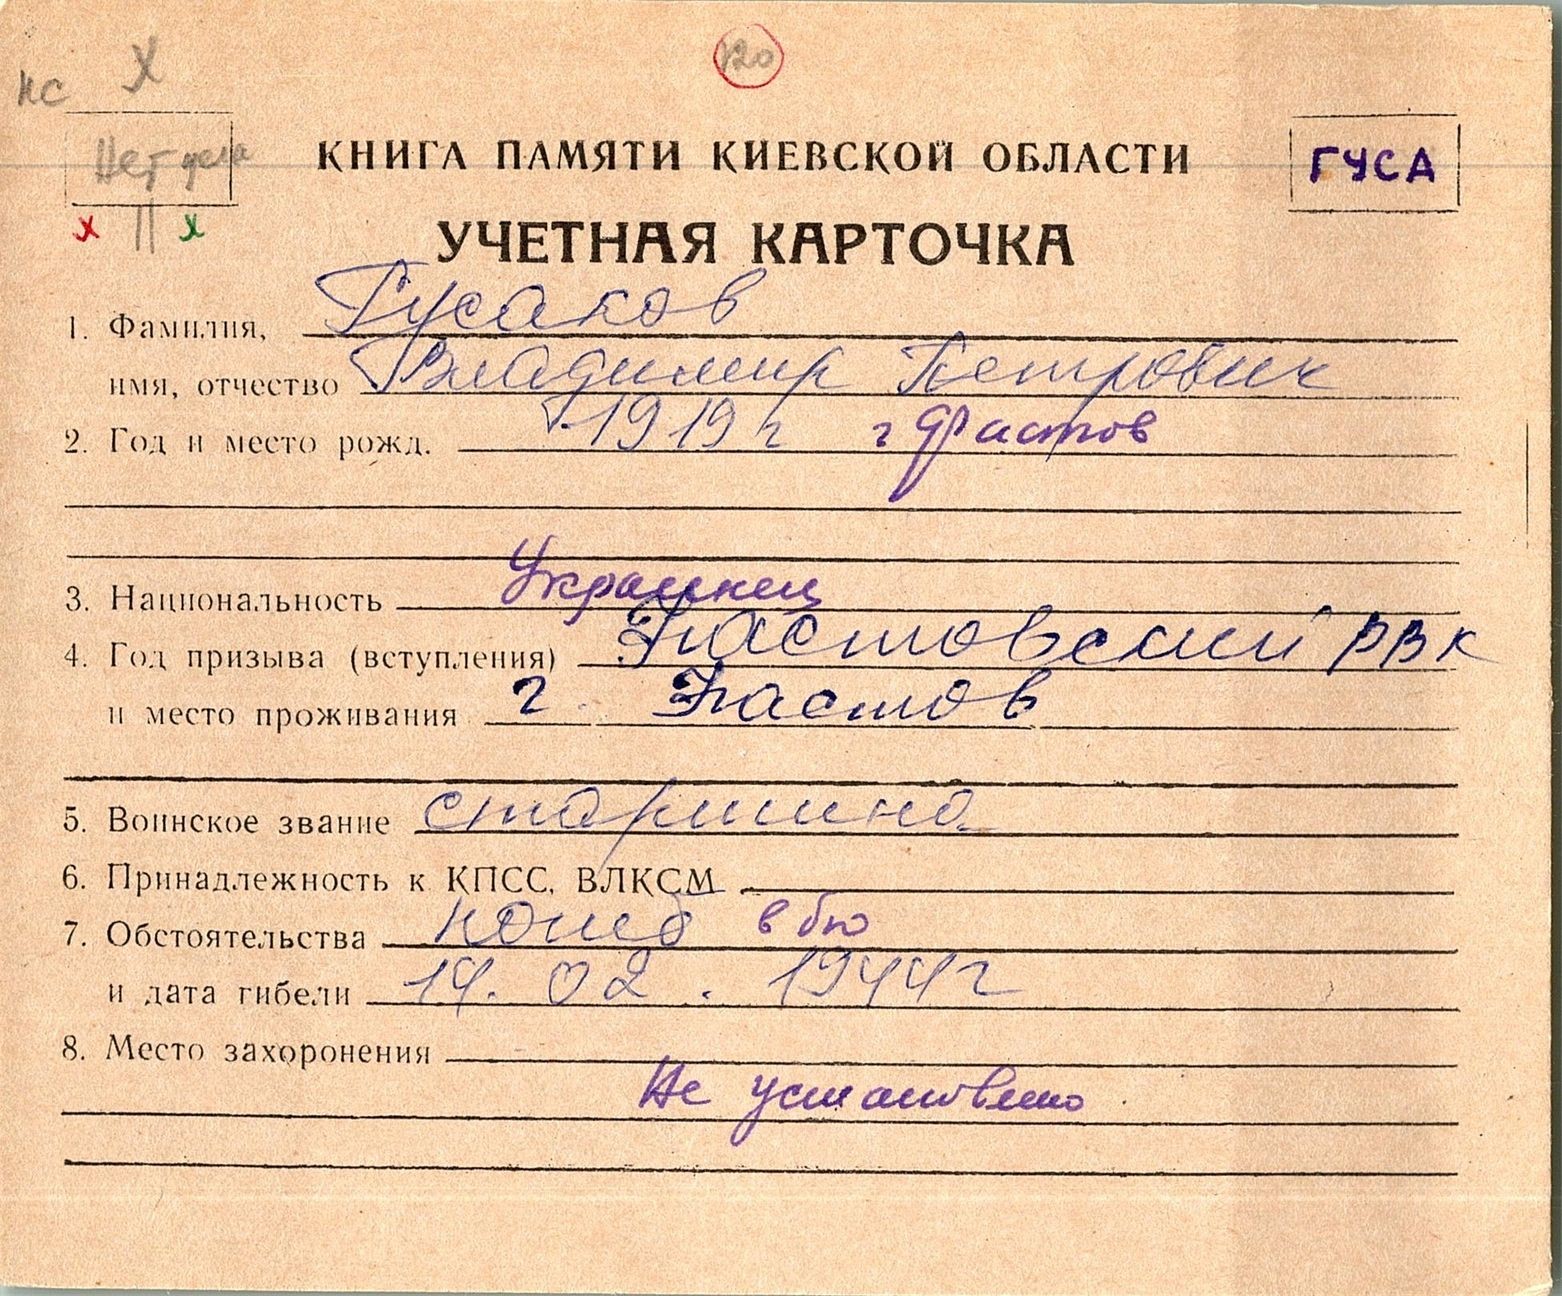 нс х 120
Нет дела
КНИГА ПАМЯТИ КИЕВСКОЙ ОБЛАСТИ
ГУСА
х || х
УЧЕТНАЯ КАРТОЧКА
1. Фамилия, Гусаков
имя, отчество Владимир Петрович
2. Год и место рожд. 1919 г г Фастов
3. Национальность Украинец
4. Год призыва (вступления) Фастовский РВК
и место проживания г. Фастов
5. Воинское звание старшина
6. Принадлежность к КПСС, ВЛКСМ
7. Обстоятельства погиб в бю
и дата гибели 14. 02. 1944 г
8. Место захоронения
Не установлено